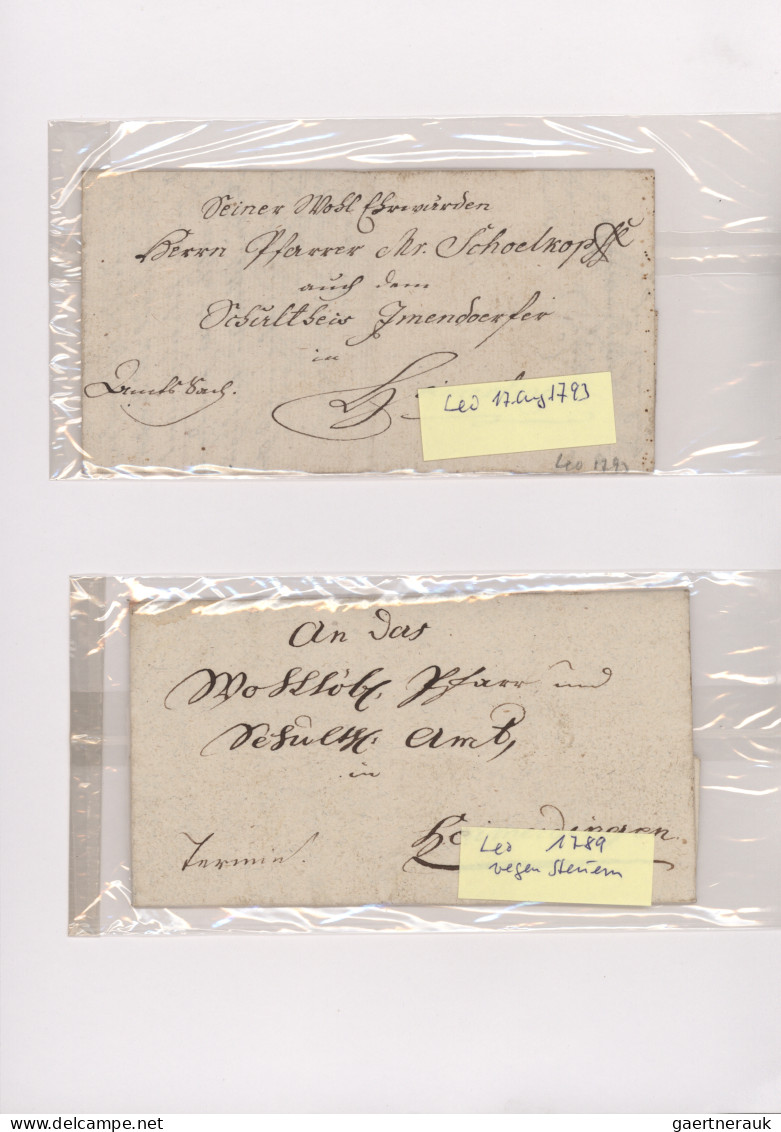 Seiner Wohl Ehrwürden
Herrn Pfarrer Mr. Schoelkopff
auch dem
Schultheis Imendoerfer
in
Amts Sach.
Leo 17 Aug 1793
Leo 1793
An das
Wohllöbl. Pfarr und
Schulth: Amt,
in
Termin.
Leo 1789
wegen Steuern
www.delcampe.net
gaertnerauk